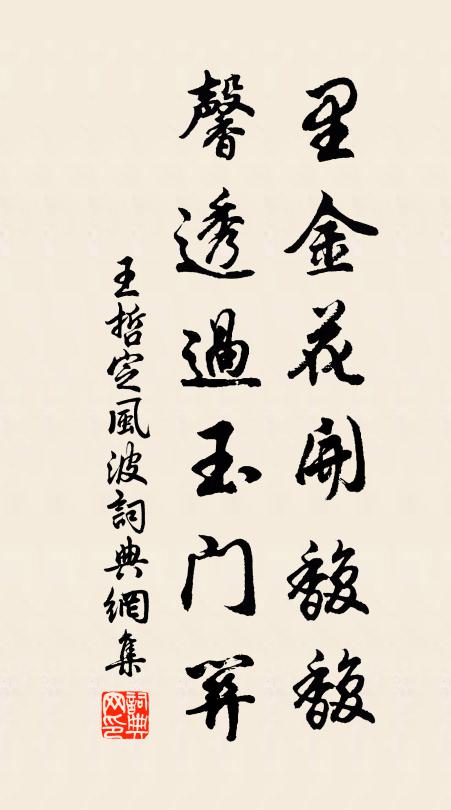 里金花開馥馥
馨透過玉門
王哲定風波詞典網集
詞典
网印